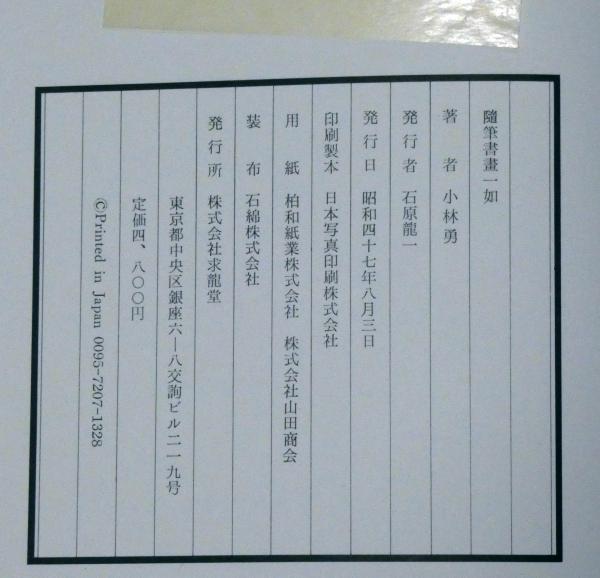 隨筆書畫一如
著者 小林勇
発行者 石原龍一
発行日 昭和四十七年八月三日
印刷製本 日本写真印刷株式会社
用紙 柏和紙業株式会社 株式会社山田商会
装布 石綿株式会社
発行所 株式会社求龍堂
東京都中央区銀座六—八交詢ビル二一九号
定価四、八〇〇円
©Printed in Japan 0095-7207-1328